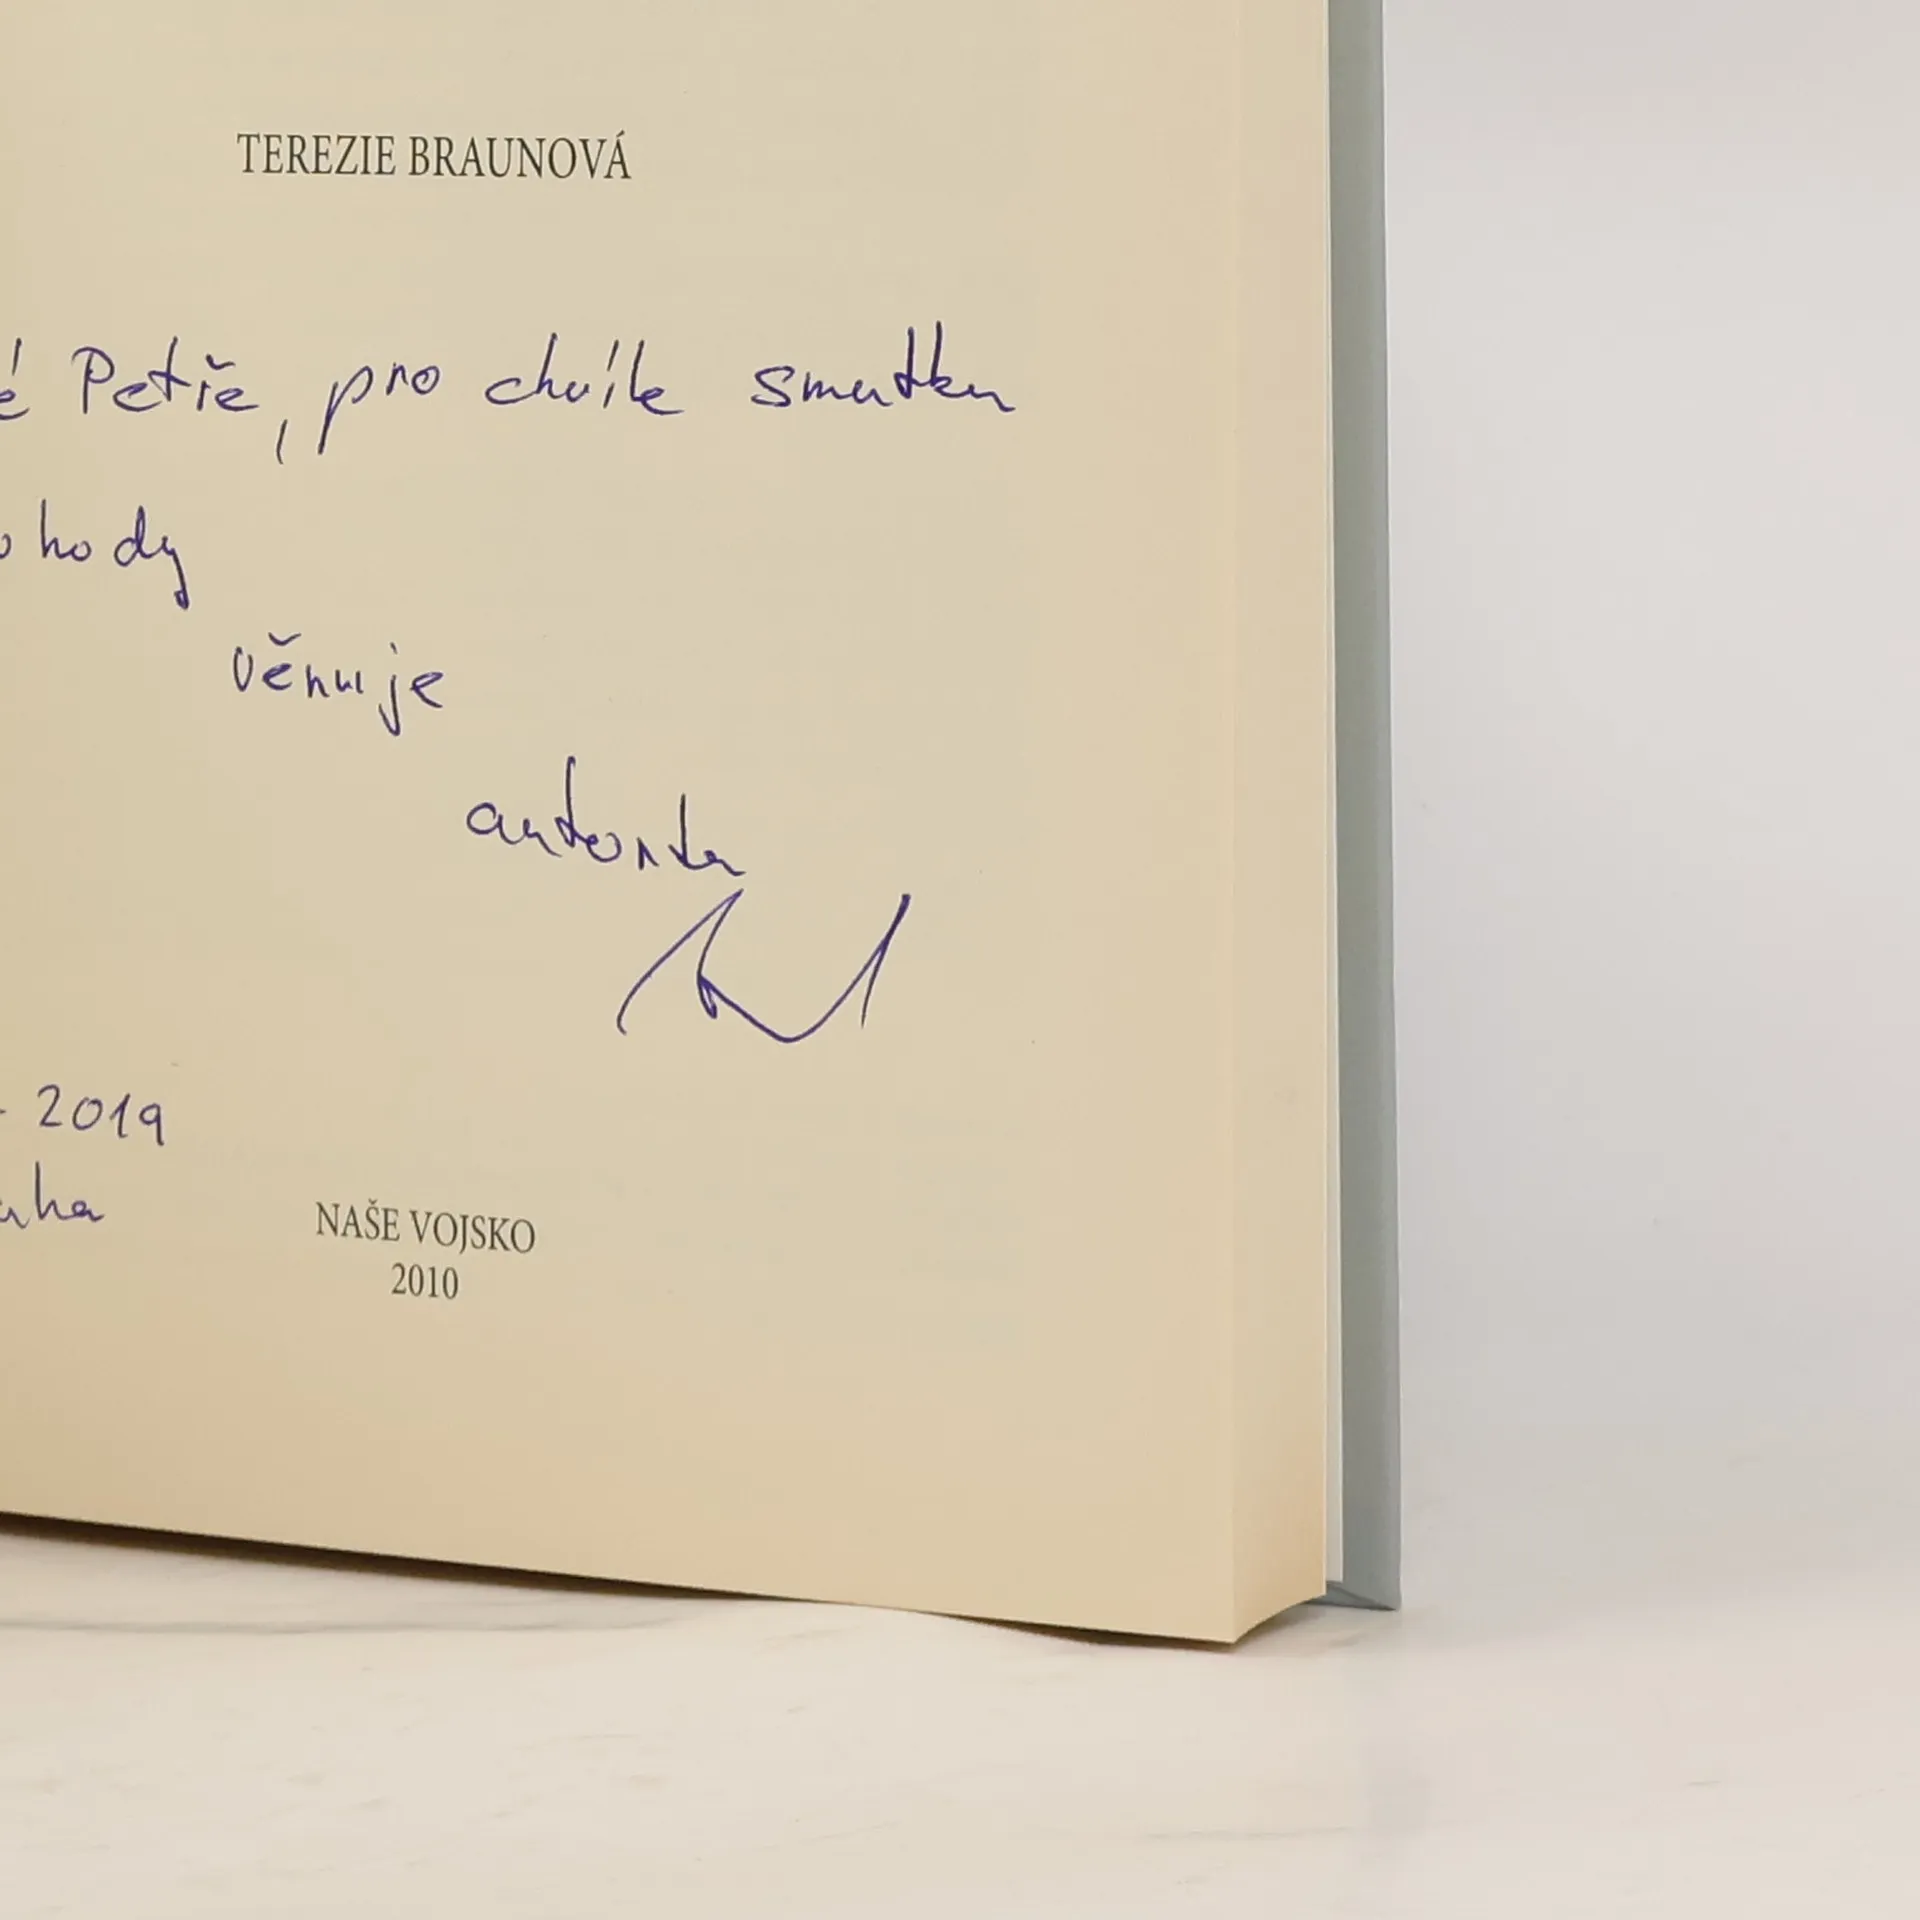 TEREZIE BRAUNOVÁ
é Petře, pro chvíle smutku
ohody
věnuje
autorka
- 2019
aha
NAŠE VOJSKO
2010